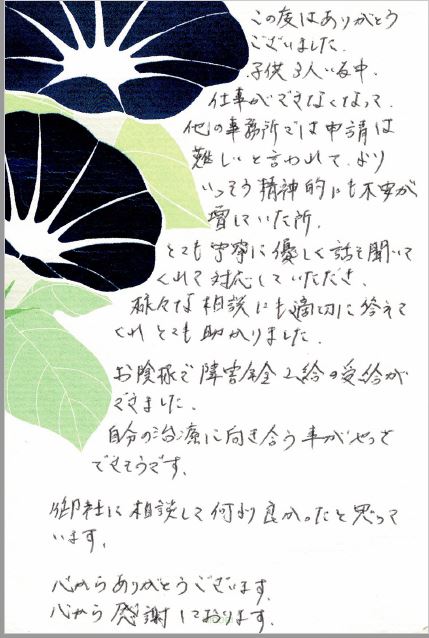 この度はありがとう
ございました.
子供3人いる中.
仕事ができなくなって.
他の事務所では申請は
難しいと言われて.より
いっそう精神的にも不安が
増していた所.
とても丁寧に優しく話を聞いて
くれて対応していただき.
様々な相談にも適切に答えて
くれとても助かりました.
お陰様で障害年金2級の受給が
できました.
自分の治療に向き合う事がやっと
できそうです.
御社に相談して何より良かったと思って
います.
心からありがとうございます.
心から感謝しております.